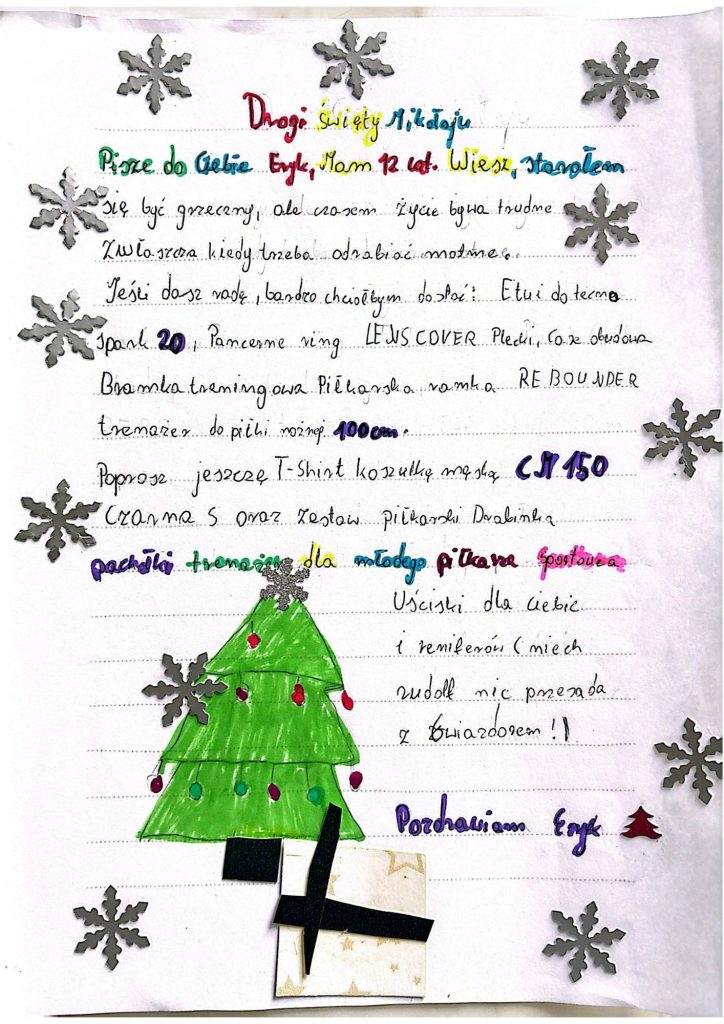 Drogi święty Mikołaju
Pisze do Ciebie Eryk, Mam 12 lat. Wiesz, starałem
się być grzeczny, ale czasem życie bywa trudne
Zwłaszcza kiedy trzeba odrabiać matmę.
Jeśli dasz radę, bardzo chciałbym dostać: Etui do tecno
spark 20, Pancerne ring LENS COVER Plecki, Case obudowa
Bramka treningowa Piłkarska, ramka REBOUNDER
trenażer do piłki nożnej 100cm.
Poprosz jeszczę T-Shirt koszulkę męską CM 150
Czarna S oraz zestaw piłkarski Drabinka
pachołki trenażer dla młodego piłkarza Sportowca
Uściski dla ciebie
i reniferów (niech
rudolf nie przesada
z Gwiazdorem!)
Pozdrawiam Eryk